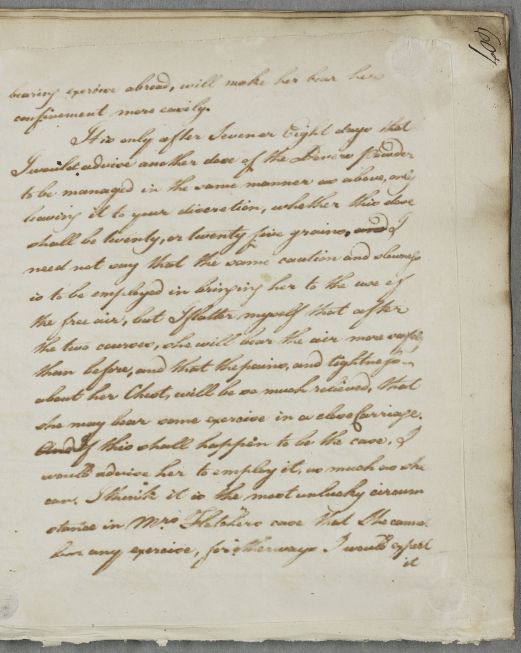 bearing exercise abroad, will make her bear her
confinement more easily.
It is only after Seven or Eight days that
I would advise another dose of the Dovers Powder
to be managed in the same manner as above, only
leaving it to your discretion, whether this dose
shall be twenty, or twenty five grains, and I
need not say that the same caution and slowness
is to be employed in bringing her to the use of
the free air, but I flatter myself that after
the two courses, she will bear the air more safely
than before, and that the pains, and tightness
about her Chest, will be so much relieved, that
she may bear some exercise in a close Carriage.
And If this shall happen to be the case, I
would advise her to employ it, as much as she
can. I think it is the most unlucky circum
stance in Mrs. Fletchers case that She canno
bear any exercise, for otherways I would expect
it